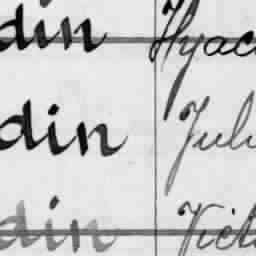 din Hyac
din Juli
din Vict